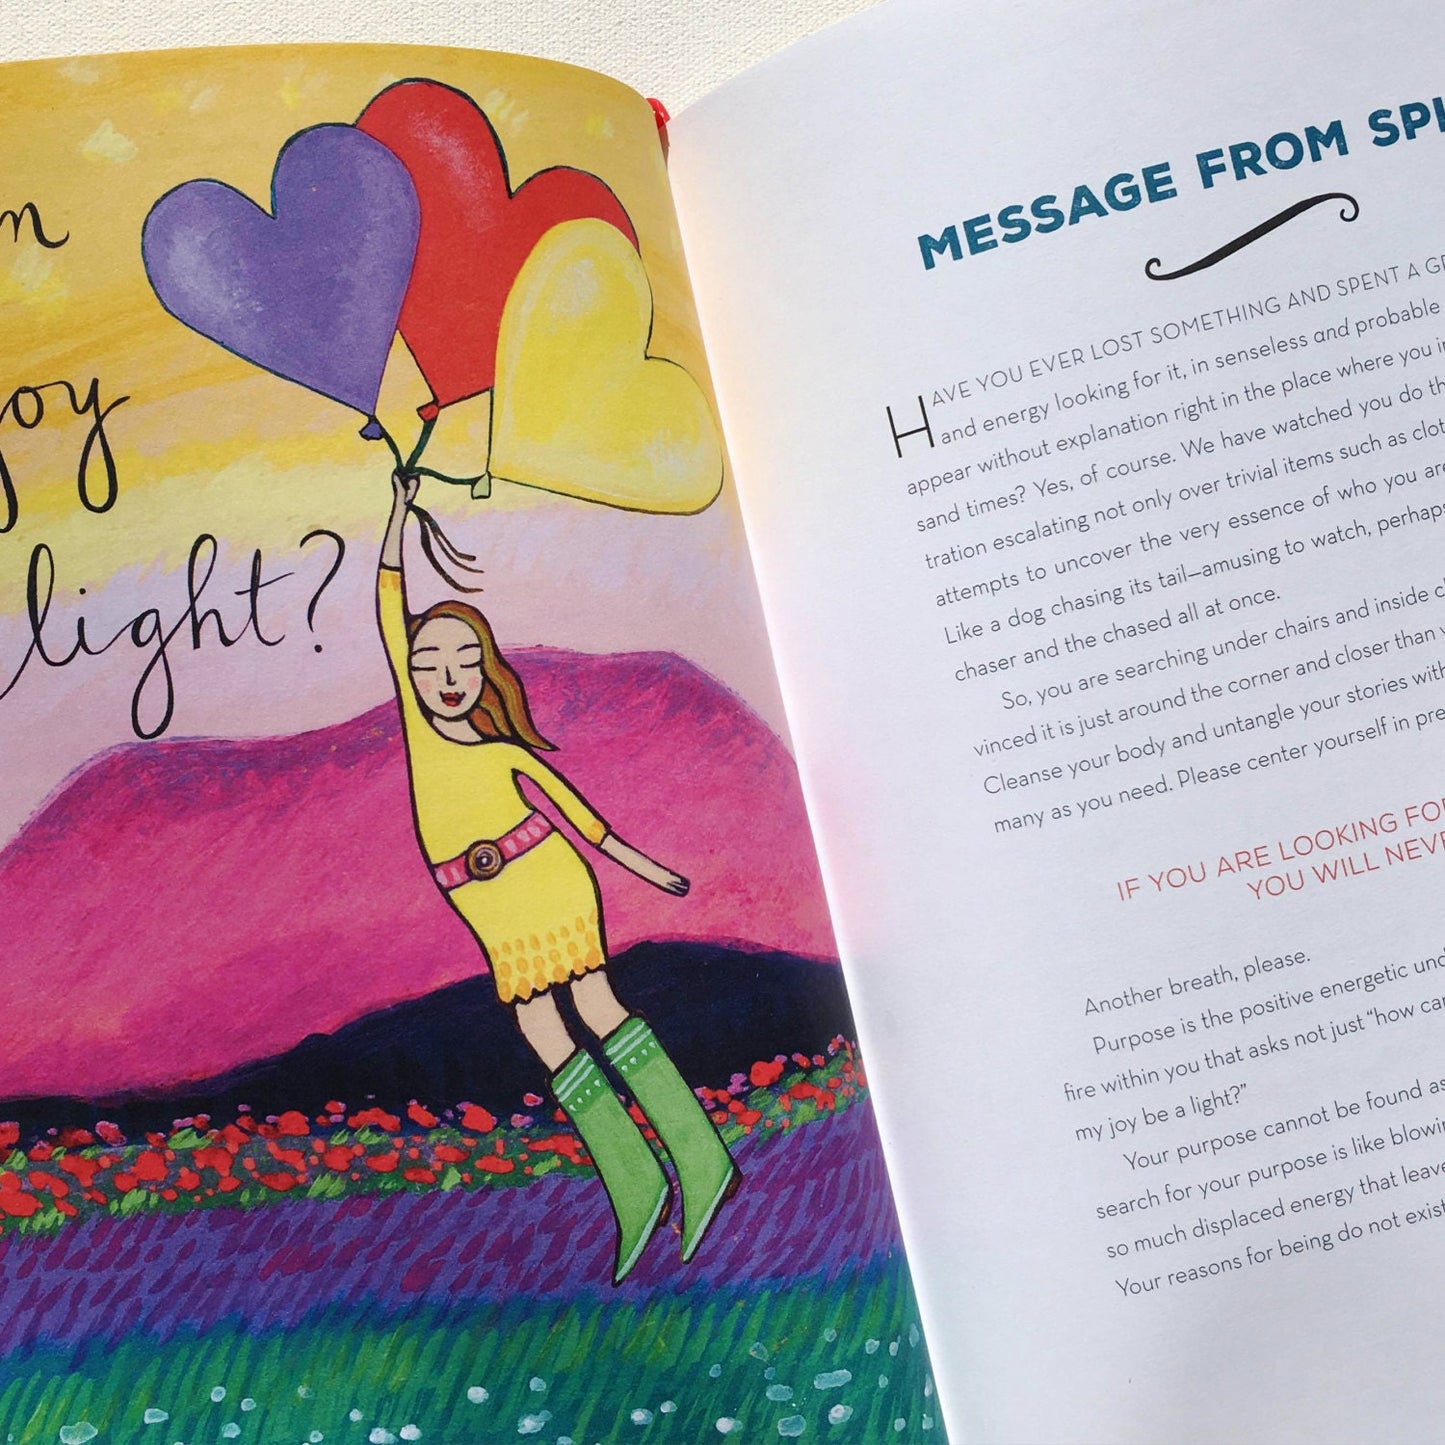 joy
light?
MESSAGE FROM
HAVE YOU EVER LOST SOMETHING AND SPENT A
and energy looking for it, in senseless and probable
appear without explanation right in the place where you
sand times? Yes, of course. We have watched you do
tration escalating not only over trivial items such as
attempts to uncover the very essence of who you
Like a dog chasing its tail—amusing to watch, perhaps
chaser and the chased all at once.
So, you are searching under chairs and inside
vinced it is just around the corner and closer than
Cleanse your body and untangle your stories
many as you need. Please center yourself in
IF YOU ARE LOOKING
YOU WILL
Another breath, please.
Purpose is the positive energetic
fire within you that asks not just "how
my joy be a light?"
Your purpose cannot be found
search for your purpose is like
so much displaced energy that
Your reasons for being do not exist